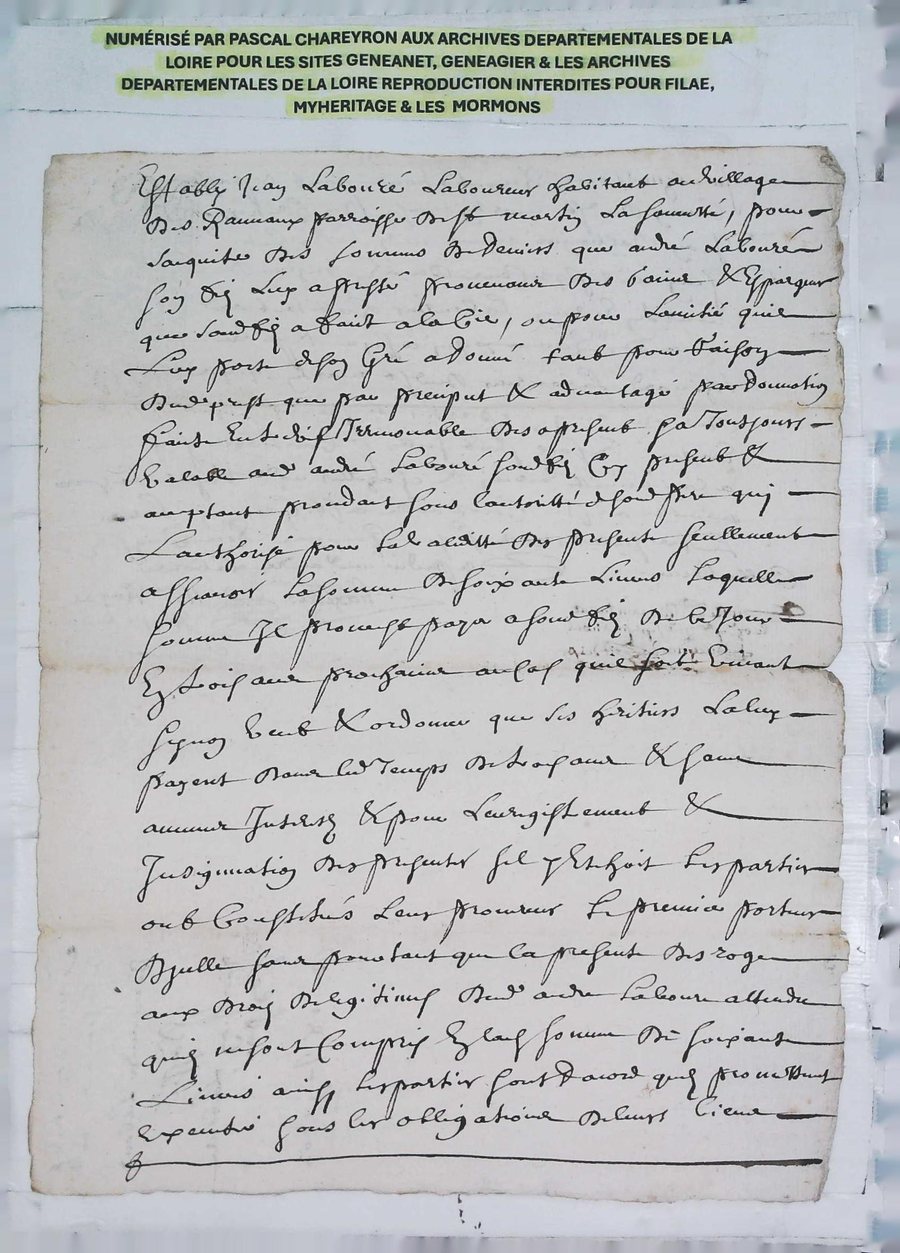 NUMÉRISÉ PAR PASCAL CHAREYRON AUX ARCHIVES DEPARTEMENTALES DE LA
LOIRE POUR LES SITES GENEANET, GENEAGIER & LES ARCHIVES
DEPARTEMENTALES DE LA LOIRE REPRODUCTION INTERDITES POUR FILAE,
MYHERITAGE & LES MORMONS
Estably Jean Labouré Laboureur habitant au village
des parroisse de st martin La , pour
saquite des sommes de deniers que andré Labouré
son filz Luy a presté provenant des & Espargnes
que sond filz a faict , ou pour Lamitié quil
Luy porte de son Gré a donné tant pour raison
dud prest que par preciput & advantage par donnation
faicte Entre vifs Irrevocable des a present & a Tousjours
Valable aud andré Labouré sond filz Cy present &
acceptant procedant sous lautoritté de sond pere qui
Lauthorise pour la validitté des presente seullement
assavoir La somme de soixante Livres Laquelle
somme Il promest payer a sond filz de Ce Jour
En trois ans prochains au Cas quil soit Vivant
synon Veut & ordonne que ses heritiers La luy
payent dans led Temps de trois ans & sans
aucuns Interest & pour Lenregistrement &
Insignuation des presentes sil y Eschoit Les parties
ont Constitués Leur procureur Le premier porteur
dycelle sans pourtant que la presente desroge
aux drois de legitime dud andre Laboure attendu
quilz ne sont Compris En lad somme de soixante
Livres ainsy Les parties sont d'acord quilz promettent
executer sous les obligations de leurs biens